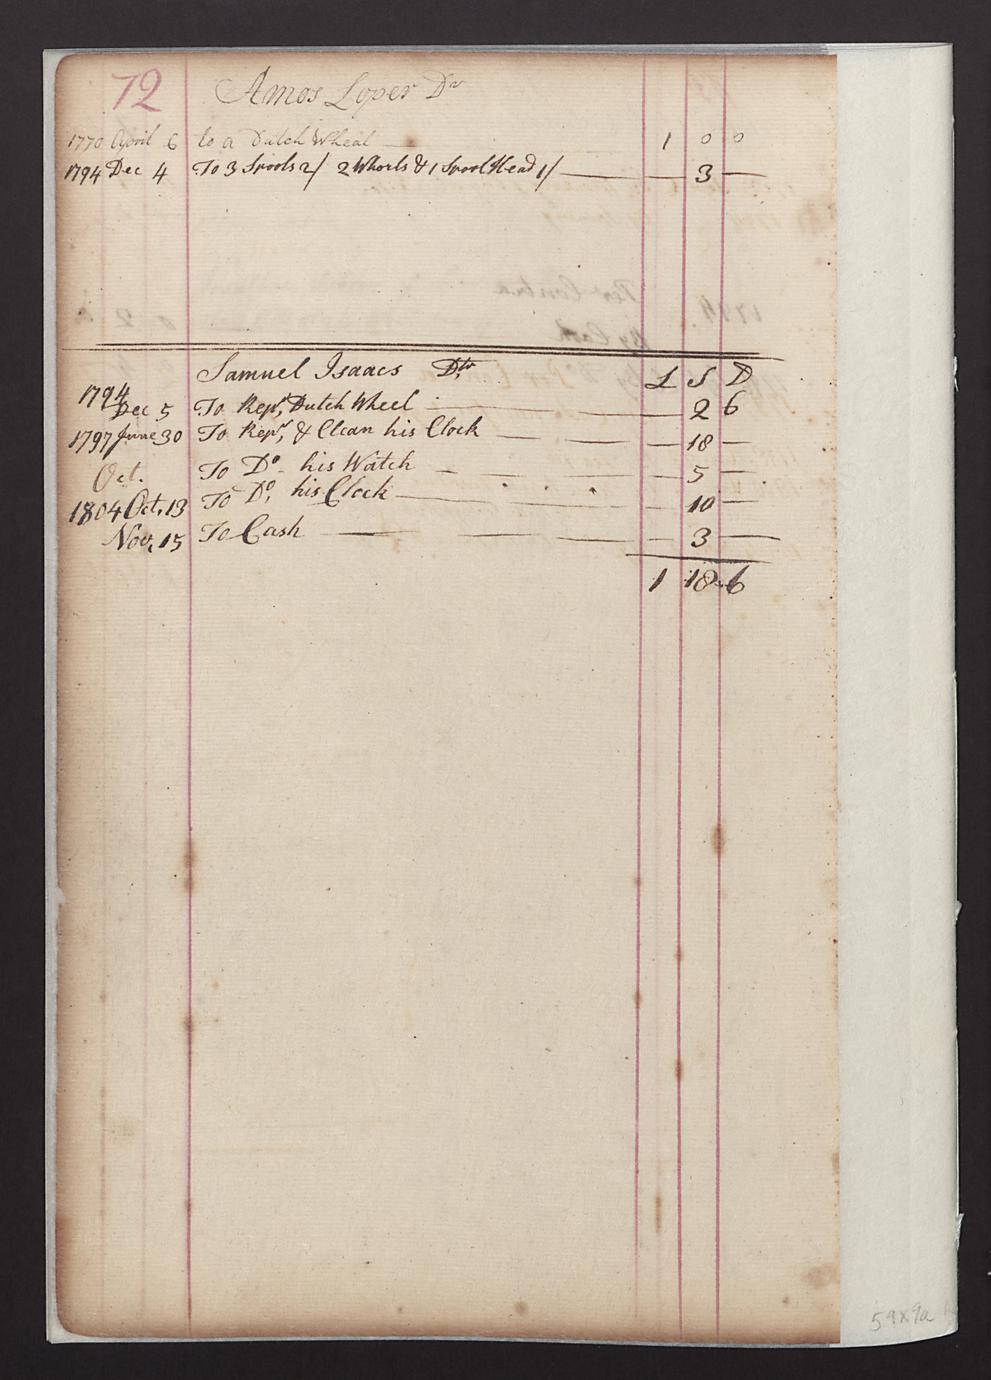 72 Amos Loper Dr
1770 April 6 to a Dutch Wheal 1 0 0
1794 Dec 4 To 3 Spools 2/ 2 Whorls & 1 Spool Head 1/ 3
Samuel Isaacs Dtr L S D
1794
Dec 5 To Repr, Dutch Wheel 2 6
1797 June 30 To Repr, & Clean his Clock 18
Oct. To Do his Watch 5
1804 Oct, 13 To Do, his Clock 10
Nov, 15 To Cash 3
1 18 6
59x9a